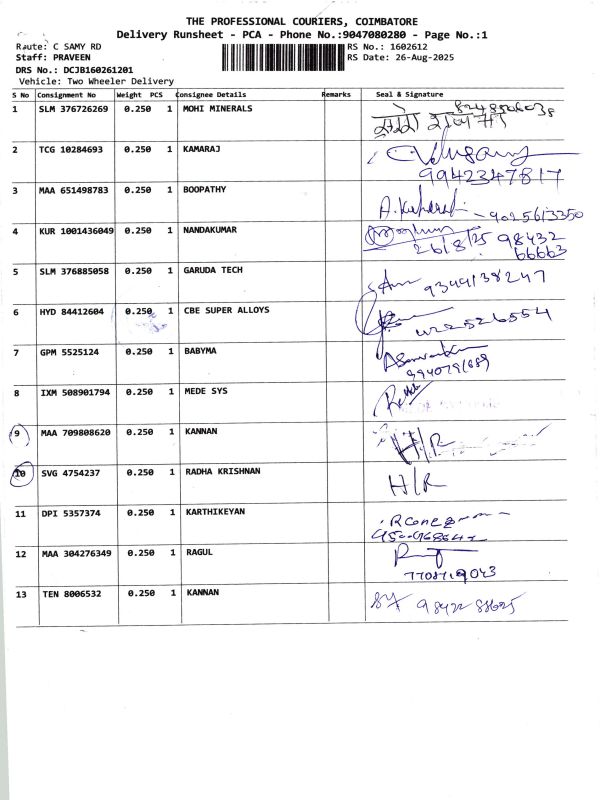 THE PROFESSIONAL COURIERS, COIMBATORE
Delivery Runsheet - PCA - Phone No.:9047080280 - Page No.:1
Route: C SAMY RD RS No.: 1602612
Staff: PRAVEEN RS Date: 26-Aug-2025
DRS No.: DCJB160261201
Vehicle: Two Wheeler Delivery
S No Consignment No Weight PCS Consignee Details Remarks Seal & Signature
1 SLM 376726269 0.250 1 MOHI MINERALS
2 TCG 10284693 0.250 1 KAMARAJ
9942347817
3 MAA 651498783 0.250 1 BOOPATHY
9025613350
4 KUR 1001436049 0.250 1 NANDAKUMAR
26/8/25 98432
66663
5 SLM 376885058 0.250 1 GARUDA TECH
9344138247
6 HYD 84412604 0.250 1 CBE SUPER ALLOYS
7 GPM 5525124 0.250 1 BABYMA
8 IXM 508901794 0.250 1 MEDE SYS
9 MAA 709808620 0.250 1 KANNAN H/R
10 SVG 4754237 0.250 1 RADHA KRISHNAN H/R
11 DPI 5357374 0.250 1 KARTHIKEYAN
12 MAA 304276349 0.250 1 RAGUL
13 TEN 8006532 0.250 1 KANNAN